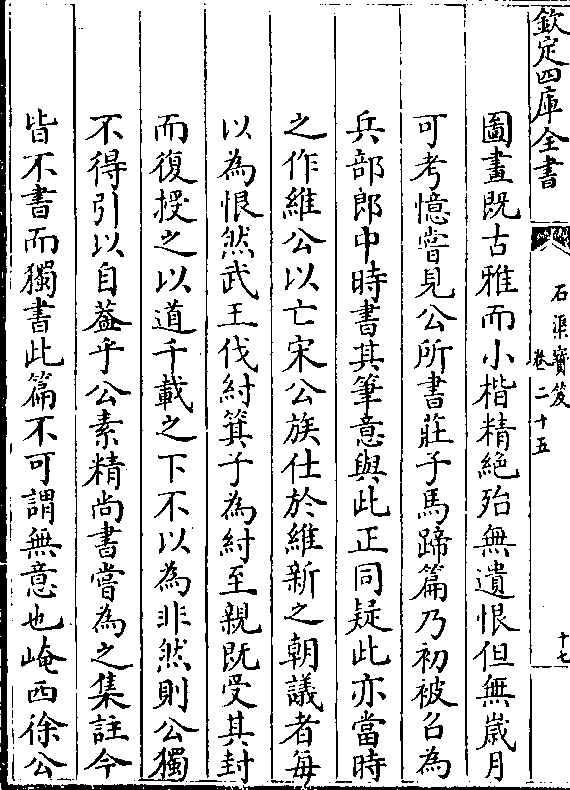 欽定四庫全書
石渠寶笈
卷二十五
十七
圖畫既古雅而小楷精絶殆無遺恨但無嵗月
可考憶嘗見公所書莊子馬蹄篇乃初被召為
兵部郎中時書其筆意與此正同疑此亦當時
之作維公以亡宋公族仕於維新之朝議者每
以為恨然武王伐紂箕子為紂至親既受其封
而復授之以道千載之下不以為非然則公獨
不得引以自葢乎公素精尚書嘗為之集註今
皆不書而獨書此篇不可謂無意也崦西徐公